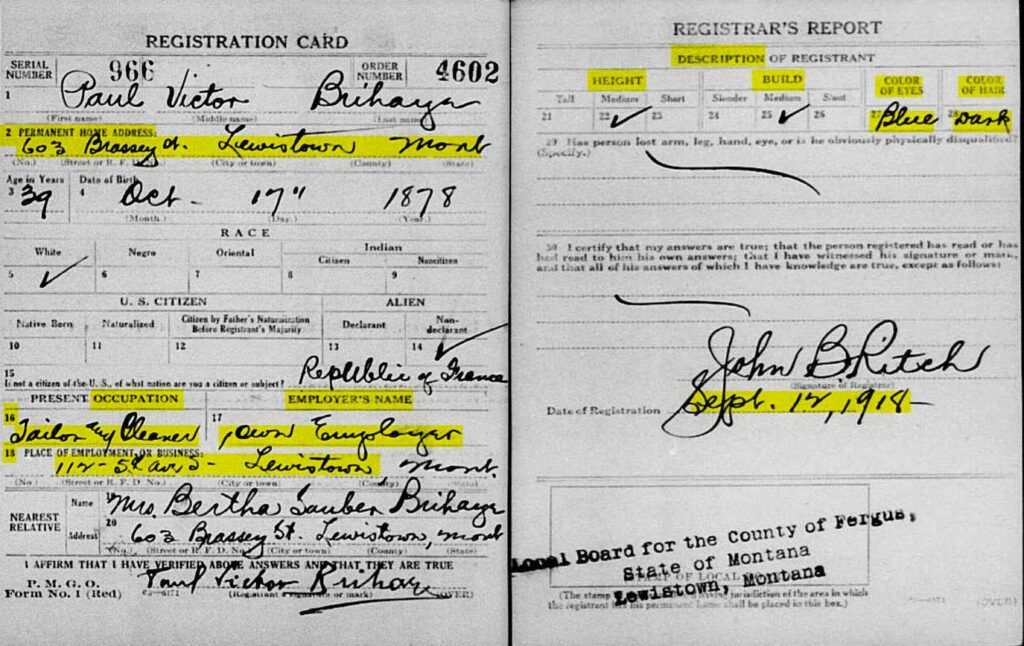 REGISTRATION CARD
SERIAL NUMBER 966 ORDER NUMBER 4602
1 Paul Victor Brihaye
(First name) (Middle name) (Last name)
2 PERMANENT HOME ADDRESS:
603 Brassey St. Lewistown Mont
(No.) (Street or R. F. D. No.) (City or town) (County) (State)
Age in Years Date of Birth
3 39 4 Oct - 17" 1878
(Month.) (Day.) (Year.)
RACE
White Negro Oriental Indian
Citizen Noncitizen
5 ✓ 6 7 8 9
U. S. CITIZEN ALIEN
Native Born Naturalized Citizen by Father's Naturalization Before Registrant's Majority Declarant Non-declarant
10 11 12 13 14 ✓
15
If not a citizen of the U. S., of what nation are you a citizen or subject? Republic of France
PRESENT OCCUPATION EMPLOYER'S NAME
16 Tailor Cleaner 17 own Employer
18 PLACE OF EMPLOYMENT OR BUSINESS:
112 - 5th Ave S - Lewistown, Mont.
(No.) (Street or R. F. D. No.) (City or town) (County) (State)
NEAREST RELATIVE Name 19 Mrs. Bertha Brihaye
Address 20 603 Brassey St. Lewistown, Mont
(No.) (Street or R. F. D. No.) (City or town) (County) (State)
I AFFIRM THAT I HAVE VERIFIED ABOVE ANSWERS AND THAT THEY ARE TRUE
P. M. G. O.
Form No. 1 (Red) Paul Victor Brihaye
(Registrant's signature or mark) (OVER)
REGISTRAR'S REPORT
DESCRIPTION OF REGISTRANT
HEIGHT BUILD COLOR OF EYES COLOR OF HAIR
Tall Medium Short Slender Medium Stout
21 22 ✓ 23 24 25 ✓ 26 27 Blue 28 Dark
29 Has person lost arm, leg, hand, eye, or is he obviously physically disqualified?
(Specify.)
30 I certify that my answers are true; that the person registered has read or has
had read to him his own answers; that I have witnessed his signature or mark,
and that all of his answers of which I have knowledge are true, except as follows:
John B. Ritch
(Signature of Registrar)
Date of Registration Sept. 12, 1918
Local Board for the County of Fergus,
State of Montana
Lewistown, Montana
STAMP OF LOCAL
(The stamp having jurisdiction of the area in which
the registrant has his permanent home shall be placed in this box.)
(OVER)